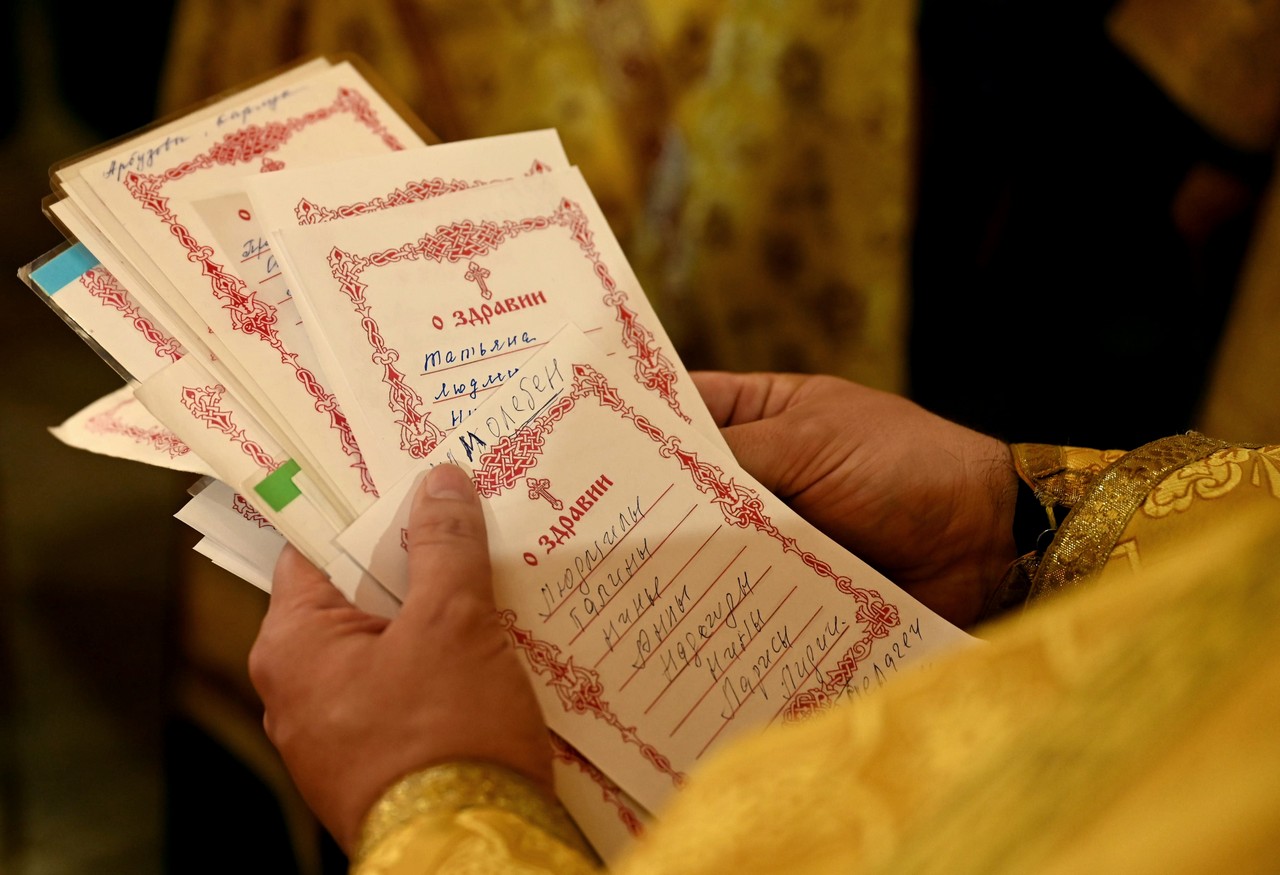 Арбузовы
о
о здравии
Татьяна
Людми
Ни
Молебен
о здравии
Людмилы
Галины
Нины
Анны
Надежды
Нины
Ларисы
Лидии
Пелагеи